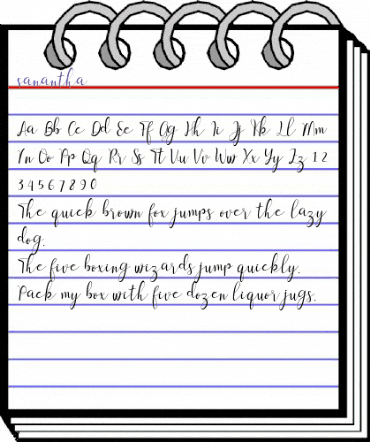 sanantha
Aa Bb Cc Dd Ee Ff Gg Hh Ii Jj Kk Ll Mm
Nn Oo Pp Qq Rr Ss Tt Uu Vv Ww Xx Yy Zz 1 2
3 4 5 6 7 8 9 0
The quick brown fox jumps over the lazy
dog.
The five boxing wizards jump quickly.
Pack my box with five dozen liquor jugs.